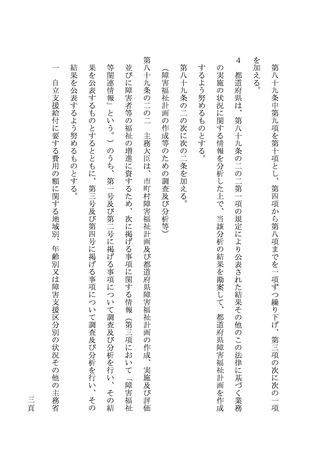 第八十九条中第九項を第十項とし、第四項から第八項までを一項ずつ繰り下げ、第三項の次に次の一項
を加える。
４　都道府県は、第八十九条の二の二第一項の規定により公表された結果その他のこの法律に基づく業務
の実施の状況に関する情報を分析した上で、当該分析の結果を勘案して、都道府県障害福祉計画を作成
するよう努めるものとする。
第八十九条の二の次に次の二条を加える。
（障害福祉計画の作成等のための調査及び分析等）
第八十九条の二の二　主務大臣は、市町村障害福祉計画及び都道府県障害福祉計画の作成、実施及び評価
並びに障害者等の福祉の増進に資するため、次に掲げる事項に関する情報（第三項において「障害福祉
等関連情報」という。）のうち、第一号及び第二号に掲げる事項について調査及び分析を行い、その結
果を公表するものとするとともに、第三号及び第四号に掲げる事項について調査及び分析を行い、その
結果を公表するよう努めるものとする。
一　自立支援給付に要する費用の額に関する地域別、年齢別又は障害支援区分別の状況その他の主務省
三頁